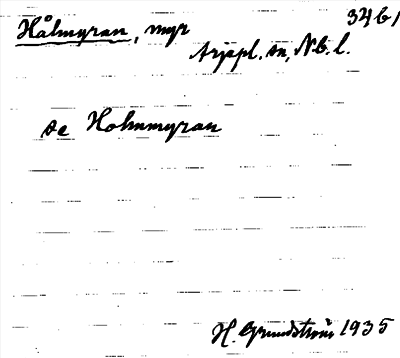 Hålmyran, myr 3461
Arjepl. sn, Nb. l.
se Holmmyran
H. Grundström 1935